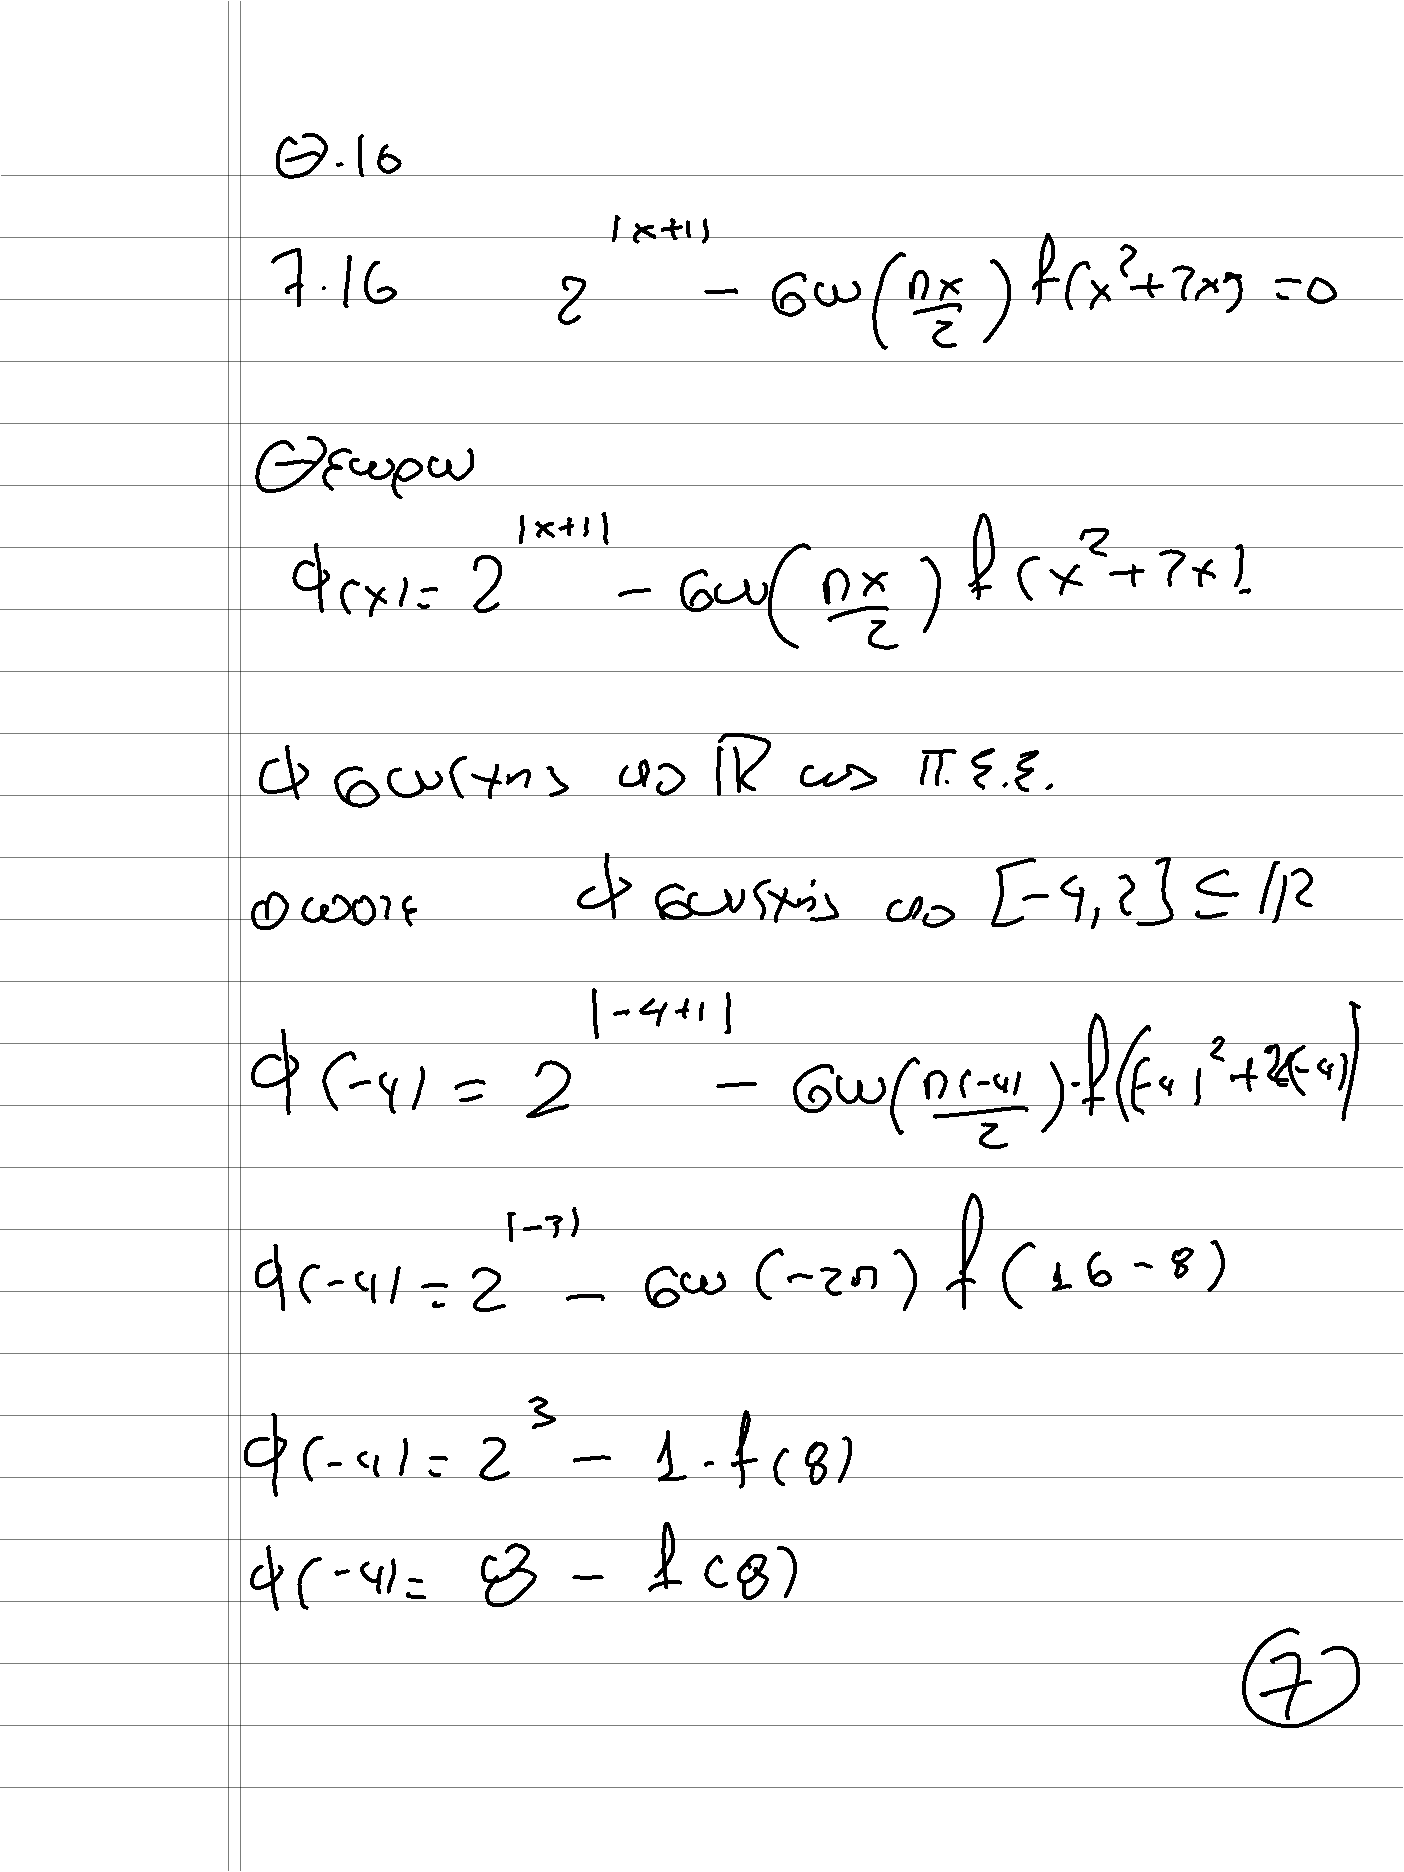 Θ.16
7.16 2^|x+1| - συν(πx/2) f(x²+2x) = 0
Θεωρω
φ(x) = 2^|x+1| - συν(πx/2) f(x²+2x).
φ συνεχης στο ℝ ως Π.Σ.Σ.
οποτε φ συνεχής στο [-4,2] ⊆ ℝ
φ(-4) = 2^|-4+1| - συν(π(-4)/2)·f((-4)²+2(-4))
φ(-4) = 2^|-3| - συν(-2π) f(16-8)
φ(-4) = 2³ - 1·f(8)
φ(-4) = 8 - f(8)
7